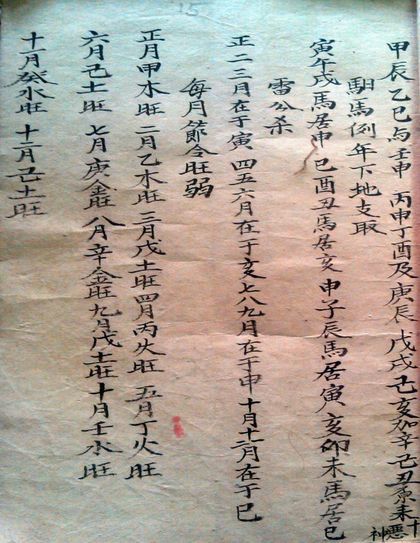 甲辰乙巳与壬申 丙申丁酉及庚辰 戊戌己亥加辛己丑未十悪神
馹馬例年下地支取
寅午戌馬居申 巳酉丑馬居亥 申子辰馬居寅 亥卯未馬居巳
雷公杀
正二三月在于寅 四五六月在于亥 七八九月在于申 十月十二月在于巳
每月節令旺弱
正月甲木旺 二月乙木旺 三月戊土旺 四月丙火旺 五月丁火旺
六月己土旺 七月庚金旺 八月辛金旺 九月戊土旺 十月壬水旺
十一月癸水旺 十二月己土旺